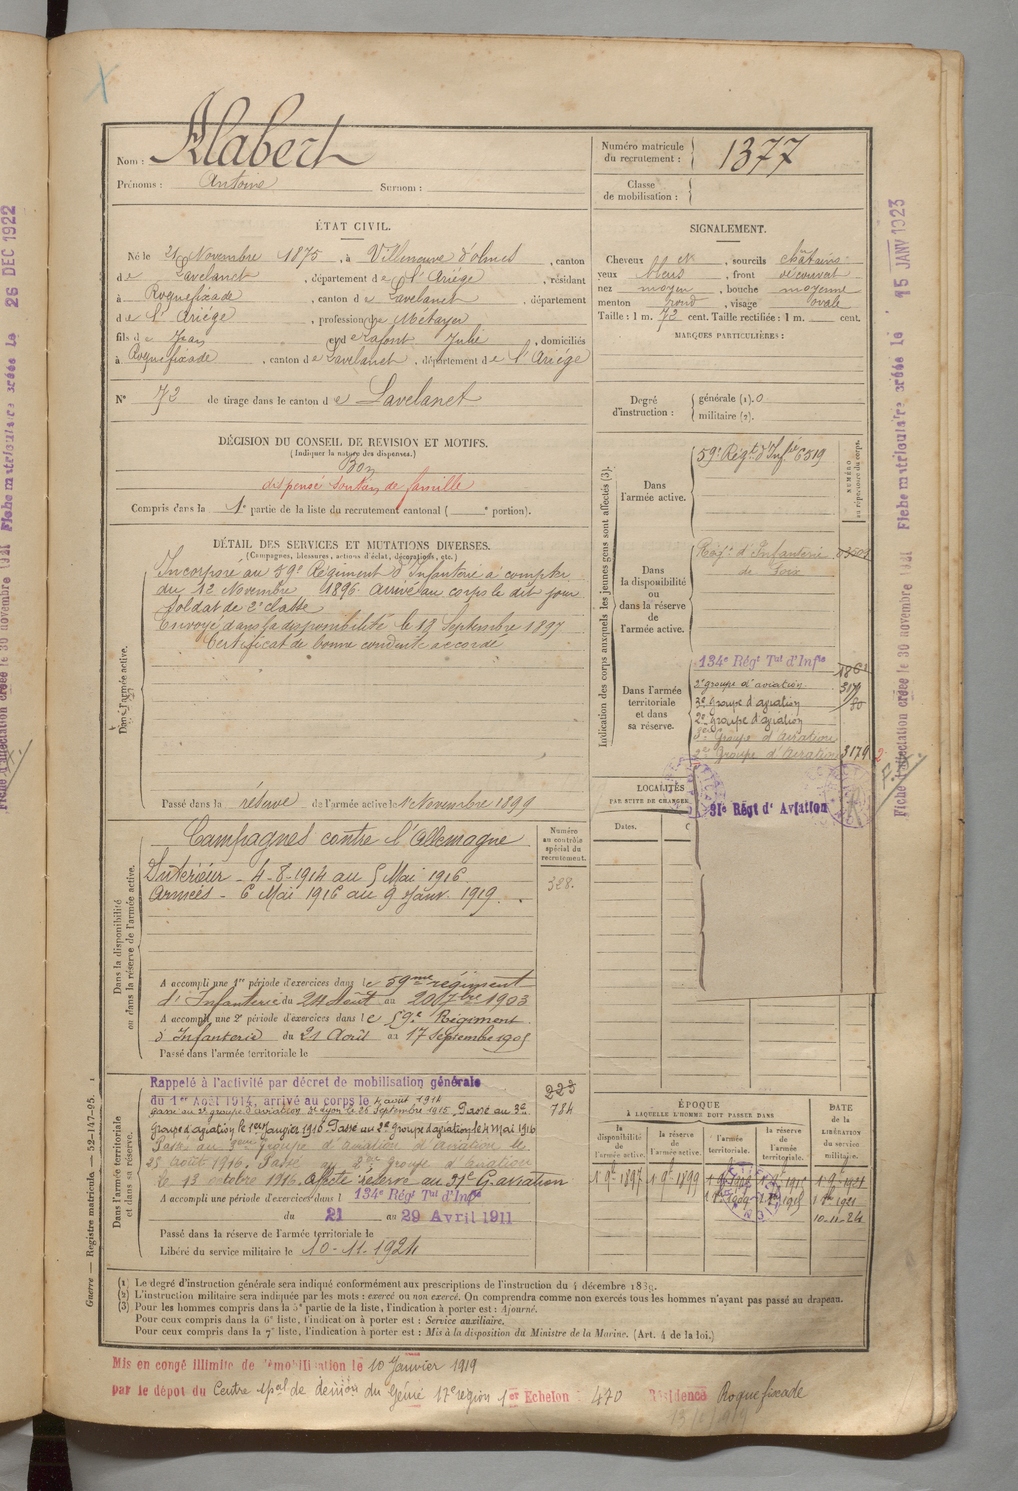 Nom : Alabert
Prénoms : Antoine Surnom :
Numéro matricule du recrutement : 1377
Classe de mobilisation :
ÉTAT CIVIL.
Né le 21 Novembre 1875, à Villeneuve d'olmes, canton
de Lavelanet, département de l'Ariége, résidant
à Roquefixade, canton de Lavelanet, département
de l'Ariége, profession de Métayer
fils de Jean et de Lafont Julie, domiciliés
à Roquefixade, canton de Lavelanet, département de l'Ariége
N° 72 de tirage dans le canton de Lavelanet
SIGNALEMENT.
Cheveux et sourcils châtains
yeux bleus, front découvert
nez moyen, bouche moyenne
menton rond, visage ovale
Taille : 1 m. 72 cent. Taille rectifiée : 1 m. cent.
MARQUES PARTICULIÈRES :
Degré d'instruction : générale (1). 0
militaire (2).
DÉCISION DU CONSEIL DE REVISION ET MOTIFS.
(Indiquer la nature des dispenses.)
Bon
dispensé soutien de famille
Compris dans la 1e partie de la liste du recrutement cantonal ( e portion).
DÉTAIL DES SERVICES ET MUTATIONS DIVERSES.
(Campagnes, blessures, actions d'éclat, décorations, etc.)
Dans l'armée active.
Incorporé au 59e Régiment d'Infanterie à compter
du 12 Novembre 1896. Arrivé au corps le dit jour
Soldat de 2e classe
Envoyé dans la disponibilité le 18 Septembre 1897
Certificat de bonne conduite accordé
Passé dans la réserve de l'armée active le 1 Novembre 1899
Indication des corps auxquels les jeunes gens sont affectés (3).
NUMÉRO au répertoire du corps.
Dans l'armée active.
59e Régt d'Infie 6519
Dans la disponibilité ou dans la réserve de l'armée active.
Régt d'Infanterie
de Foix
Dans l'armée territoriale et dans sa réserve.
134e Régt Tal d'Infie
2e groupe d'aviation 317
3e Groupe d'aviation 80
2e Groupe d'aviation
8e Groupe d'aviation
2e Groupe d'Aviation 3179
31e Régt d'Aviation
LOCALITÉS
PAR SUITE DE CHANGE
Dates.
Dans la disponibilité ou dans la réserve de l'armée active.
Campagnes contre l'Allemagne
Intérieur - 4-8-1914 au 5 Mai 1916
Armées - 6 Mai 1916 au 9 Janv. 1919.
Numéro au contrôle spécial du recrutement.
328.
A accompli une 1re période d'exercices dans le 59me régiment
d'Infanterie du 24 Août au 20 7bre 1903
A accompli une 2e période d'exercices dans le 59e Régiment
d'Infanterie du 21 Août au 17 Septembre 1905
Passé dans l'armée territoriale le
Dans l'armée territoriale et dans sa réserve.
Rappelé à l'activité par décret de mobilisation générale
du 1er Août 1914, arrivé au corps le 4 août 1914
Passé au 2e groupe d'aviation de Lyon le 26 Septembre 1915. Passé au 3e
Groupe d'aviation le 1er Janvier 1916. Passé au 2e groupe d'aviation le 4 Mai 1916
Passé au groupe d'aviation d'Aviation le
25 août 1916. Passé au 2me groupe d'Aviation
le 13 octobre 1916. Affecté réserve au 31e G. aviation
223
784
A accompli une période d'exercices dans l 134e Régt Tal d'Infie
du 21 au 29 Avril 1911
Passé dans la réserve de l'armée territoriale le
Libéré du service militaire le 10-11-1924
ÉPOQUE
À LAQUELLE L'HOMME DOIT PASSER DANS
la disponibilité de l'armée active.
la réserve de l'armée active.
l'armée territoriale.
la réserve de l'armée territoriale.
DATE de la LIBÉRATION du service militaire.
1 9bre 1897 1 9bre 1899
10-11-24
(1) Le degré d'instruction générale sera indiqué conformément aux prescriptions de l'instruction du 4 décembre 1889.
(2) L'instruction militaire sera indiquée par les mots : exercé ou non exercé. On comprendra comme non exercés tous les hommes n'ayant pas passé au drapeau.
(3) Pour les hommes compris dans la 5e partie de la liste, l'indication à porter est : Ajourné.
Pour ceux compris dans la 6e liste, l'indication à porter est : Service auxiliaire.
Pour ceux compris dans la 7e liste, l'indication à porter est : Mis à la disposition du Ministre de la Marine. (Art. 4 de la loi.)
Mis en congé illimité de démobilisation le 10 Janvier 1919
par le dépôt du Centre spal de démon du Génie 17e région 1er Echelon : 470 Résidence Roquefixade
Guerre — Registre matricule — 52-147-95.
Fiche d'affectation créée le 30 novembre 1921 Fiche matriculaire créée le 15 JANV 1923
Fiche matriculaire créée le 26 DEC 1922